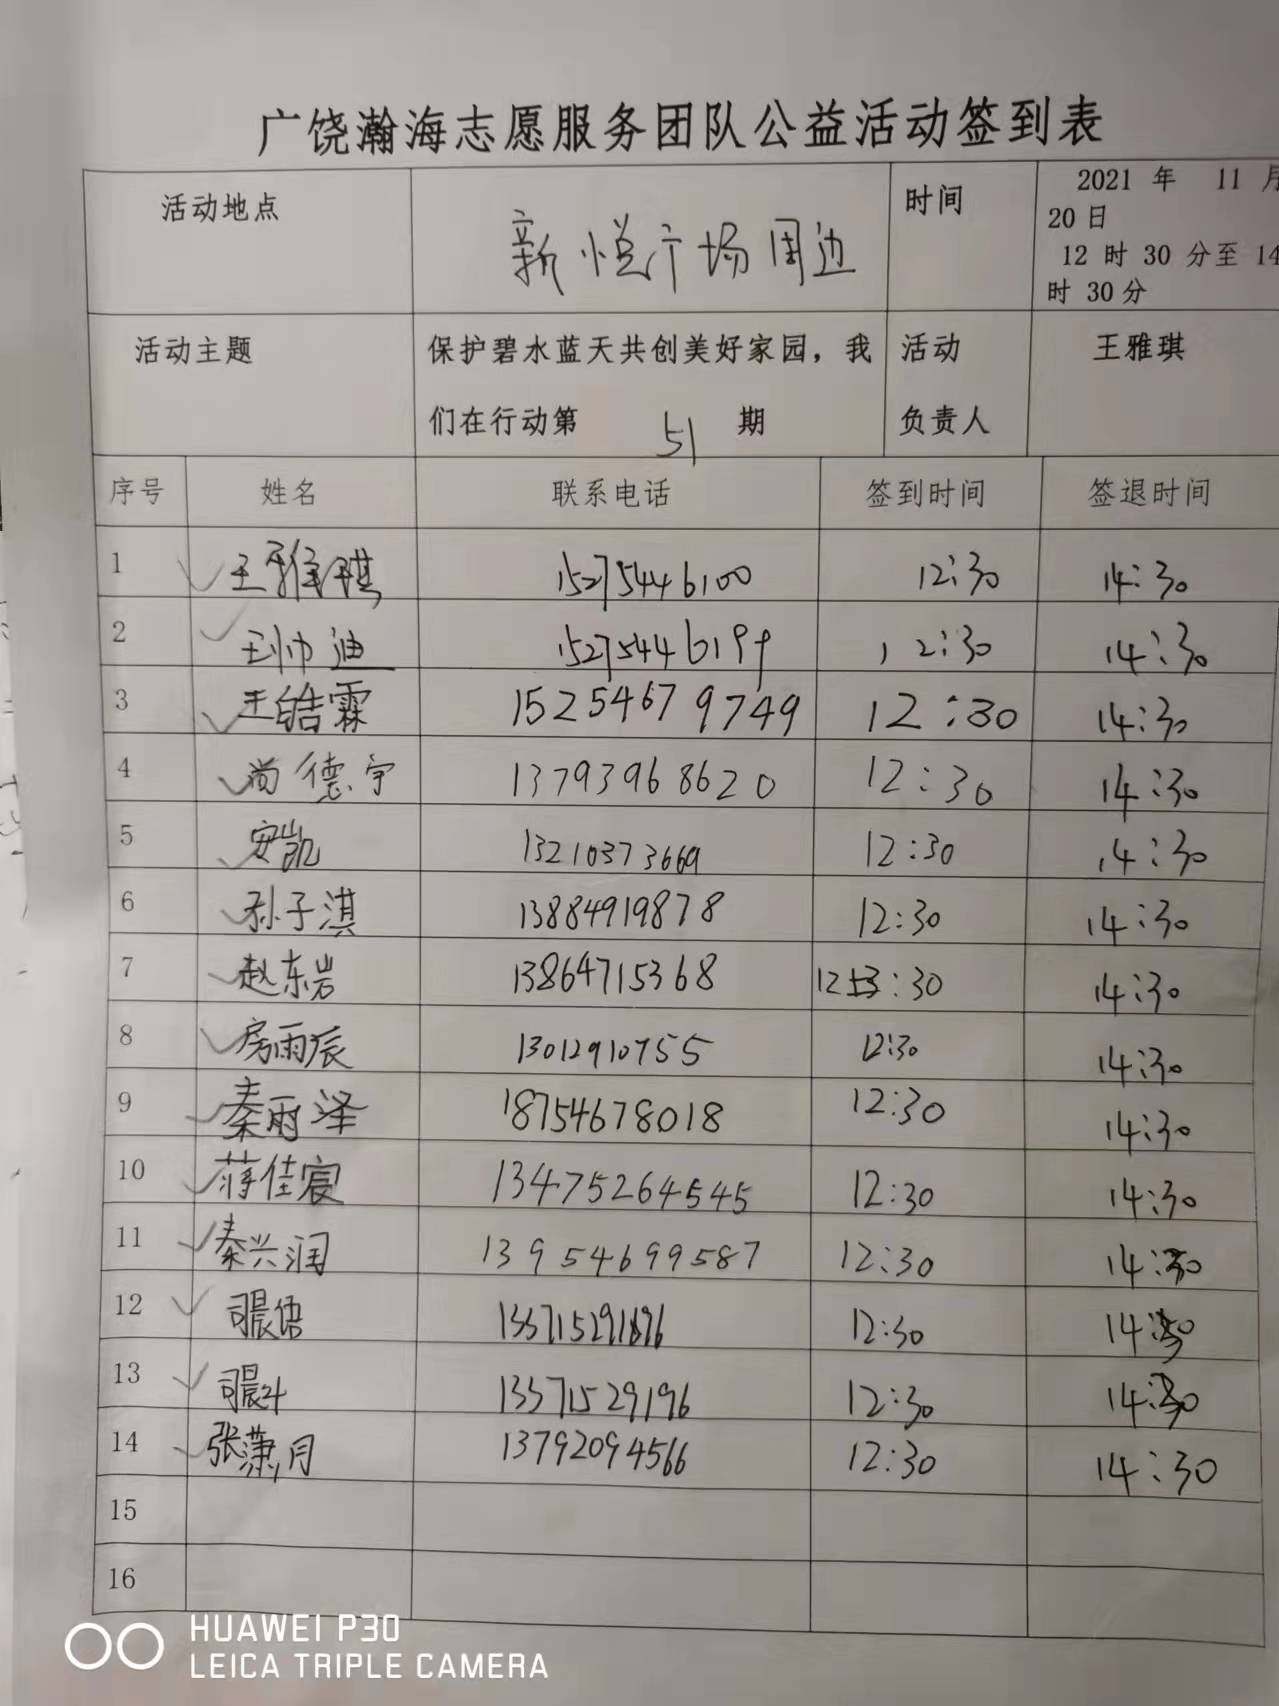 广饶瀚海志愿服务团队公益活动签到表
活动地点 新悦广场周边 时间 2021 年 11 月
20日
12 时 30 分至 14
时 30分
活动主题 保护碧水蓝天共创美好家园，我 活动 王雅琪
们在行动第 51 期 负责人
序号 姓名 联系电话 签到时间 签退时间
1 王雅琪 15275446100 12:30 14:30
2 王帅迪 15275446199 12:30 14:30
3 王皓霖 15254679749 12:30 14:30
4 尚德宇 13793968620 12:30 14:30
5 安凯 13210373669 12:30 14:30
6 孙子淇 13884919878 12:30 14:30
7 赵东岩 13864715368 12:30 14:30
8 房雨辰 13012910755 12:30 14:30
9 秦雨泽 18754678018 12:30 14:30
10 蒋佳宸 13475264545 12:30 14:30
11 秦兴润 13954699587 12:30 14:30
12 司晨语 12:30 14:30
13 13371529196 12:30 14:30
14 张潇月 13792094566 12:30 14:30
15
16
HUAWEI P30
LEICA TRIPLE CAMERA